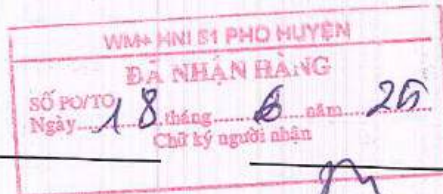 WM+ HNI 51 PHO HUYEN
ĐÃ NHẬN HÀNG
SỐ PO/TO
Ngày 18 tháng 6 năm 25
Chữ ký người nhận